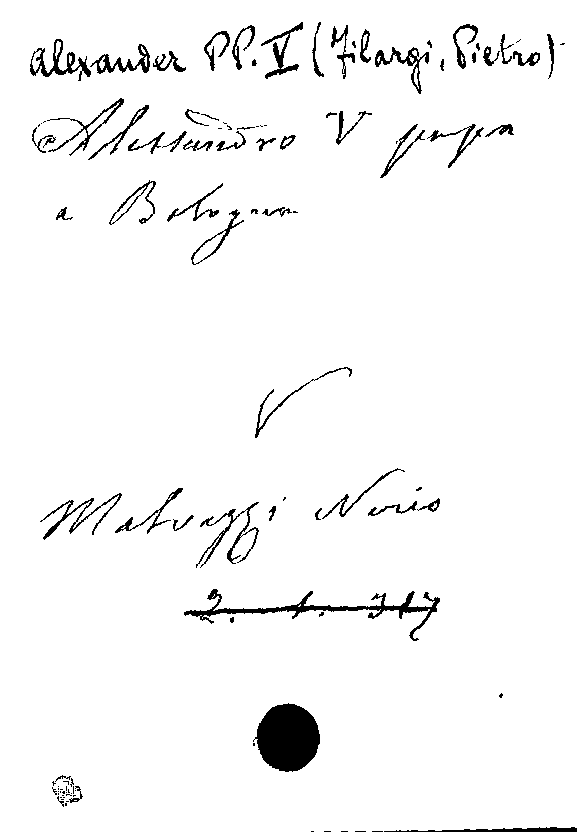 Alexander PP. V (Filargi, Pietro)
Alessandro V papa
a Bologna
V
Malvezzi Nerio
2. 1. 317